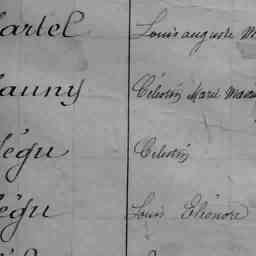 artel Louis auguste M
auny Célestin Marie
égu Célestin
égu Louis Eléonore